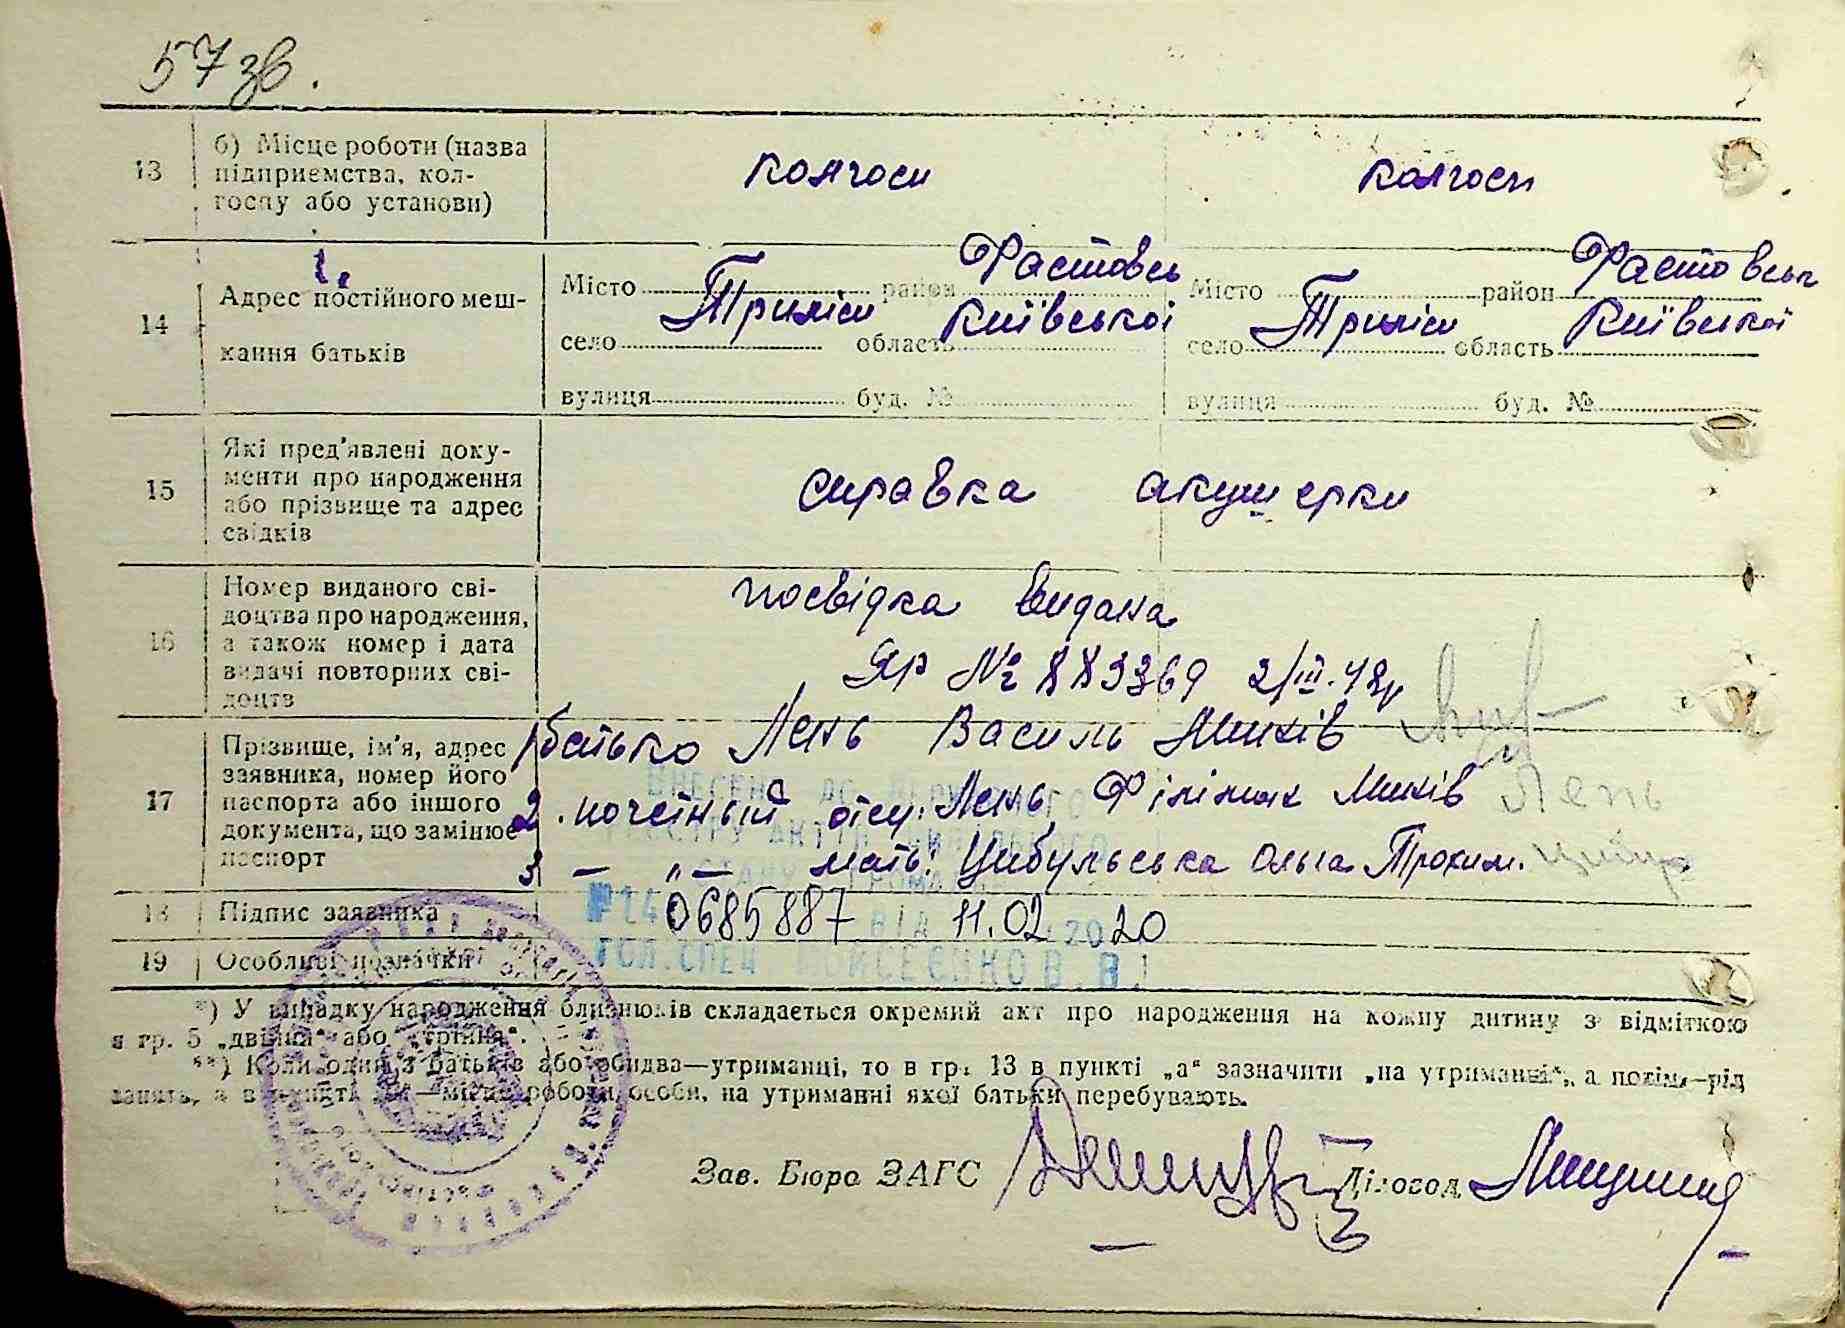 57 зв.
13
б) Місце роботи (назва
підприємства, кол-
госпу або установи)
колгосп
колгосп
14
Адрес постійного меш-
кання батьків
Місто район Фастовськ
село Триліси область Київської
вулиця буд. №
Місто район Фастовськ
село Триліси область Київської
вулиця буд. №
15
Які пред'явлені доку-
менти про народження
або прізвище та адрес
свідків
справка акушерки
16
Номер виданого сві-
доцтва про народження,
а також номер і дата
видачі повторних сві-
доцтв
посвідка видана
ЯР № 883369 2/III.48р
17
Прізвище, ім'я, адрес
заявника, номер його
паспорта або іншого
документа, що замінює
паспорт
1 батько Лень Василь Минів
2. почетный отец: Лень Філімон Минів Лень
3 — „ — мать: Цибульська Ольга Трохим.
ВНЕСЕНО ДО ДЕРЖАВНОГО
РЕЄСТРУ АКТІВ ЦИВІЛЬНОГО
СТАНУ ГРОМАДЯН
18
Підпис заявника
№ 0685887 ВІД 11.02 2020
19
Особливі позначки
ГОЛ.СПЕЦ МОЙСЕЄНКО В.В.
*) У випадку народження близнюків складається окремий акт про народження на кожну дитину з відміткою
в гр. 5 „двійня“ або „трійня“.
**) Коли один з батьків або обидва—утриманці, то в гр. 13 в пункті „а“ зазначити „на утриманні“, а потім—рід
занять, а в пункті „б“—місце роботи особи, на утриманні якої батьки перебувають.
Зав. Бюро ЗАГС
Діловод